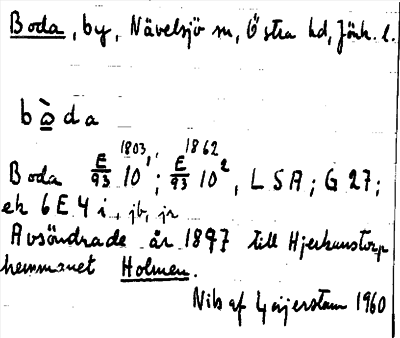 Boda, by, Nävelsjö sn, Östra hd, Jönk. l.
bò̲da
Boda E/93 10 1803,1; E/93 10 1862,2, LSA; G 27;
ek 6E4i, jb, jr
Avsöndrade år 1897 till Hjerkunstorp
hemmanet Holmen.
Nils af Geijerstam 1960